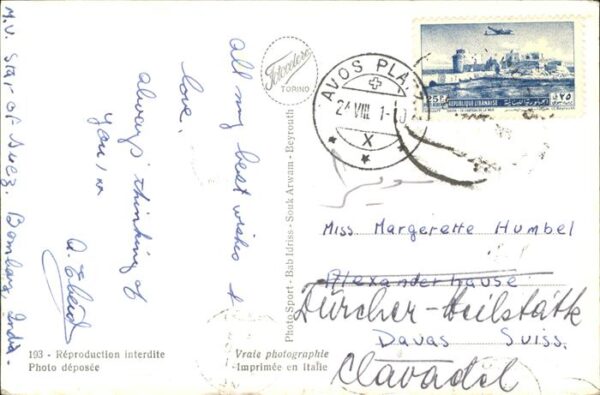 All my best wishes &
love.
Always thinking of
you,
M.V. Star of Suez. Bombay, India.
Fotocelere
TORINO
193 - Réproduction interdite
Photo déposée
Vraie photographie
-Imprimée en italie
Photo Sport - Bab Idriss - Souk Arwam - Beyrouth
AVOS PLA
24 VIII
X
25 P
REPUBLIQUE LIBANAISE
٢٥
Miss Margerette Humbel
Alexanderhause
Zürcher-Heilstätte
Davas Suiss.
Clavadel